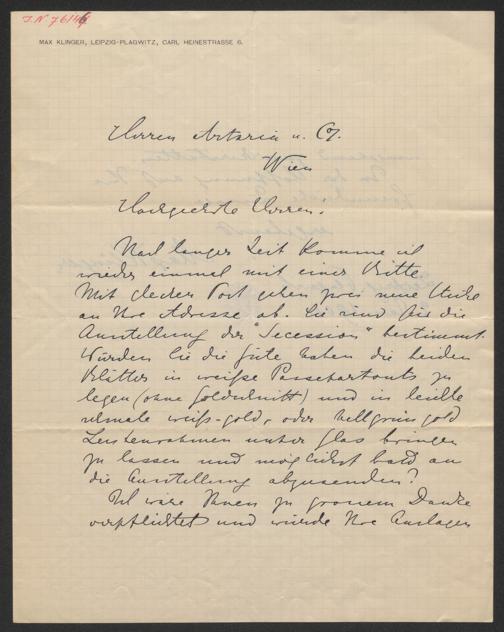 I.N. 76146
MAX KLINGER, LEIPZIG-PLAGWITZ, CARL HEINESTRASSE 6.
Herren Artaria u. Co.
Wien
Hochgeehrte Herren.
Nach langer Zeit komme ich
wieder einmal mit einer Bitte.
Mit gleicher Post gehen zwei neue Stiche
an Ihre Adresse ab. Sie sind für die
Ausstellung der "Secession" bestimmt.
Würden Sie die Güte haben die beiden
Blätter in weiße Passepartouts zu
legen (ohne Goldschnitt) und in leichte
schmale weiß-gold, oder hellgrün gold
Leistenrahmen unter Glas bringen
zu lassen und möglichst bald an
die Ausstellung abzusenden?
Ich wäre Ihnen zu grossem Danke
verpflichtet und würde Ihre Auslagen